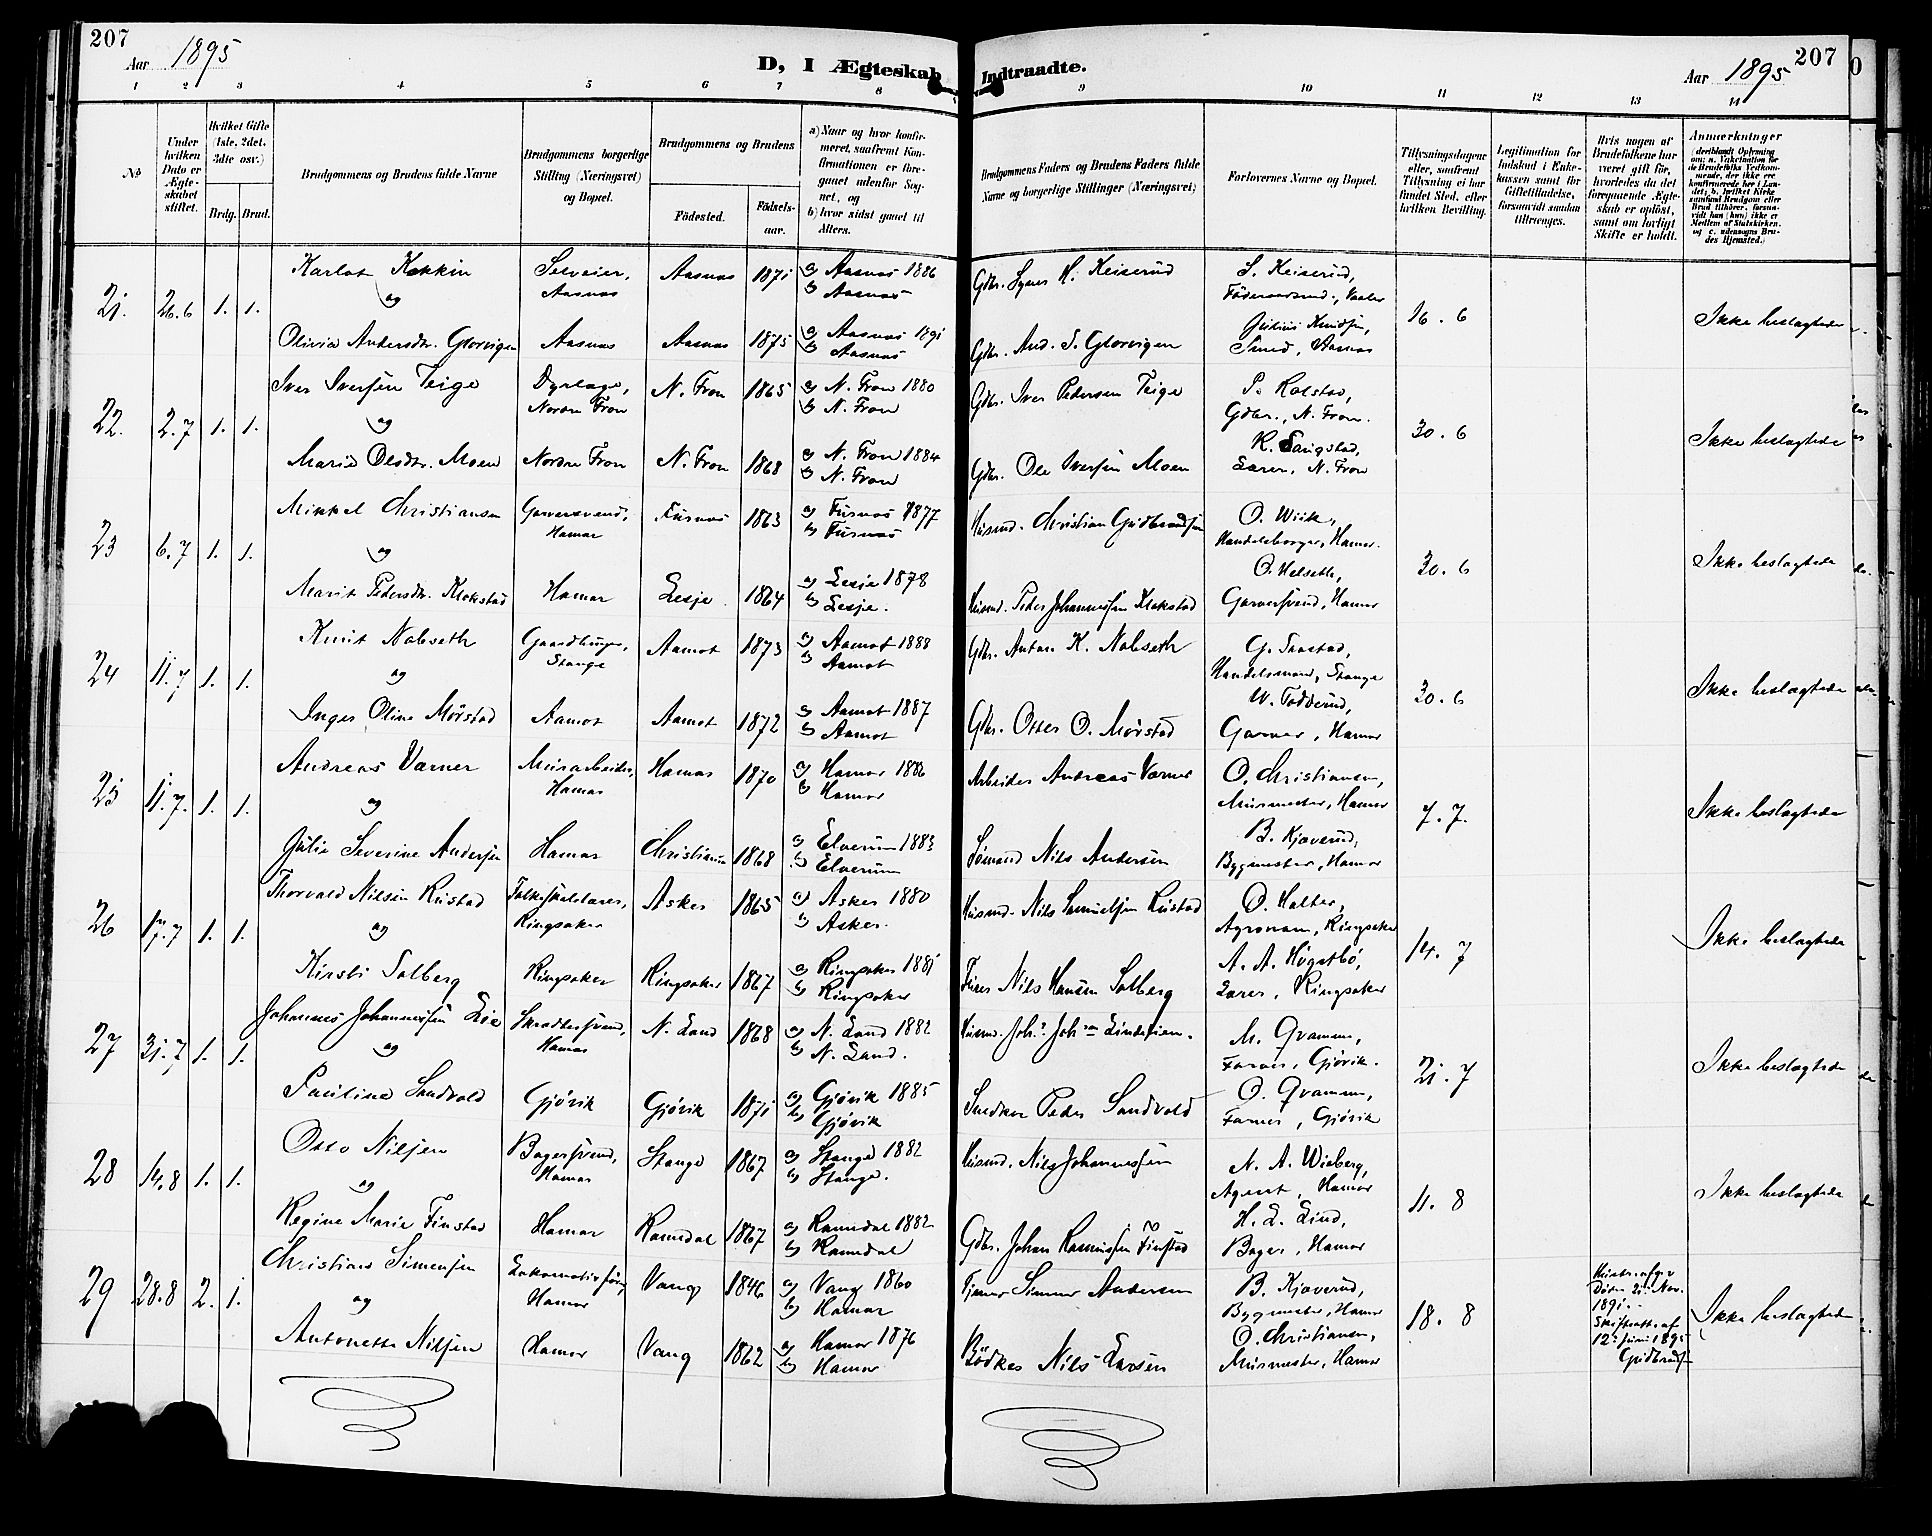 207
Aar 1895
D, I Ægteskab Indtraadte.
Aar 1895
207
1 2 3 4 5 6 7 8 9 10 11 12 13 14
No
Under hvilken Dato er Ægteskabet stiftet.
Hvilket Gifte (1ste, 2det, 3die osv.)
Brdg. Brud.
Brudgommens og Brudens fulde Navne
Brudgommens borgerlige Stilling (Næringsvei) og Bopæl.
Brudgommens og Brudens
Födested.
Födselsaar.
a) Naar og hvor konfirmeret, saafremt Konfirmationen er foregaaet udenfor Sognet, og
b) hvor sidst gaaet til Alters.
Brudgommens Faders og Brudens Faders fulde Navne og borgerlige Stillinger (Næringsvei)
Forlovernes Navne og Bopæl.
Tillysningsdagene eller, saafremt Tillysning ei har fundet Sted, efter hvilken Bevilling.
Legitimation for Indskud i Enkekassen samt for Giftetilladelse, forsaavidt saadan tiltrænges.
Hvis nogen af Brudefolkene har været gift før, hvorledes da det foregaaende Ægteskab er opløst, samt om lovligt Skifte er holdt.
Anmærkninger
21. 26.6 1. 1.
Karlot Kokkin Selveier, Aasnes Aasnes 1871 a) Aasnes 1886 b) Aasnes
Gdbr. Syver H. Keiserud S. Keiserud, Föderaadsmd., Vaaler 16. 6 Ikke beslægtede
og
Olivia Andersdr. Glorvigen Aasnes Aasnes 1875 a) Aasnes 1891 b) Aasnes
Gdbr. And. S. Glorvigen Julius Knudsen, Smed, Aasnes
22. 2.7 1. 1.
Iver Iversen Teige Dyrlæge, Nordre Fron N. Fron 1865 a) N. Fron 1880 b) N. Fron
Gdbr. Iver Pedersen Teige P. Kolstad, Gdbr., N. Fron. 30. 6 Ikke beslægtede
og
Marie Olsdr. Moen Nordre Fron N. Fron 1868 a) N. Fron 1884 b) N. Fron
Gdbr. Ole Iversen Moen K. Sangstad, Lærer, N. Fron
23 6.7 1. 1.
Mikkel Christiansen Garversvend, Hamar Furnes 1863 a) Furnes 1877 b) Furnes
Husmd. Christian Gudbrandsen O. Wiik, Handelsborger, Hamar. 30. 6 Ikke beslægtede
og
Marit Pedersdr. Klokstad Hamar Lesje 1864 a) Lesje 1878 b) Lesje.
Husmd. Peder Johannessen Klokstad O. Helseth, Garversvend, Hamar
24 11.7 1. 1.
Knut Nabseth Gaardbruger, Stange Aamot 1873 a) Aamot 1888 b) Aamot
Gdbr. Anton K. Nabseth G. Saastad, Handelsmand, Stange 30. 6 Ikke beslægtede
og
Inger Oline Mørstad Aamot Aamot 1872 a) Aamot 1887 b) Aamot
Gdbr. Otter O. Mørstad W. Fodderud, Garver, Hamar
25 11.7. 1. 1.
Andreas Varner Murarbeider, Hamar Hamar 1870 a) Hamar 1886 b) Hamar
Arbeider Andreas Varner O. Christiansen, Murmester, Hamar 7. 7. Ikke beslægtede
og
Julie Severine Andersen Hamar Christiania 1868 a) Elverum 1883 b) Elverum
Sømand Nils Andersen B. Kjøverud, Bygmester, Hamar
26 17.7 1. 1.
Thorvald Nilsen Rustad Folkeskolelærer, Ringsaker Asker 1865 a) Asker 1880 b) Asker.
Husmd. Nils Samuelsen Rustad O. Holter, Agronom, Ringsaker 14. 7 Ikke beslægtede
og
Kirsti Solberg Ringsaker Ringsaker 1867 a) Ringsaker 1881 b) Ringsaker
Furer Nils Hansen Solberg A. A. Høgstbö, Lærer, Ringsaker
27 31.7 1. 1.
Johannes Johannessen Lie Skræddersvend, Hamar N. Land 1868 a) N. Land 1882 b) N. Land.
Husmd. Joh.s Joh.sen Lindelien. M. Qvamm, Farver, Gjøvik. 21. 7 Ikke beslægtede
og
Pauline Sandvold Gjøvik Gjøvik 1871 a) Gjøvik 1885 b) Gjøvik
Snedker Peder Sandvold O. Qvamm, Farver, Gjøvik
28 14.8 1. 1.
Otto Nilsen Bagersvend, Hamar Stange 1867 a) Stange 1882 b) Stange.
Husmd. Nils Johannessen N. A. Wiberg, Agent, Hamar 11. 8 Ikke beslægtede
og
Regine Marie Finstad Hamar Romedal 1867 a) Romedal 1882 b) Romedal
Gdbr. Johan Rasmussen Finstad H. L. Lind, Bager, Hamar
29 28.8 2. 1.
Christian Simensen Lokomotivfører, Hamar Vang 1846 a) Vang 1860 b) Hamar
Tjener Simen Andersen B. Kjøverud, Bygmester, Hamar 18. 8 Hustru afgik Döden 21. Nov. 1891. Skifteatt. af 12. Juni 1895 Gudbrandsen Ikke beslægtede
og
Antonette Nilsen Hamar Vang 1862 a) Hamar 1876 b) Hamar
Bödker Nils Larsen O. Christiansen, Murmester, Hamar